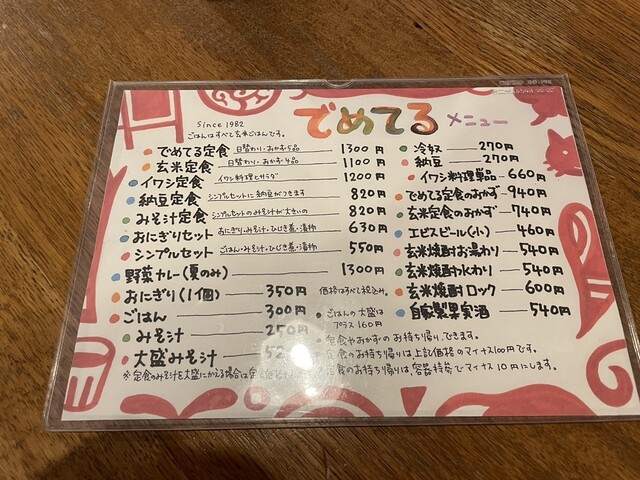 でめてる メニュー
since 1982
ごはんはすべて玄米ごはんです。
でめてる定食 日替わり・おかず5品 1300円
玄米定食 日替わり・おかず4品 1100円
イワシ定食 イワシ料理とサラダ 1200円
納豆定食 シンプルセットに納豆がつきます 820円
みそ汁定食 シンプルセットのみそ汁が大きいの 820円
おにぎりセット おにぎり・みそ汁・ひじき煮・漬物 630円
シンプルセット ごはん・みそ汁・ひじき煮・漬物 550円
野菜カレー(夏のみ) 1300円
おにぎり(1個) 350円
ごはん 300円
みそ汁 250円
大盛みそ汁
※定食のみそ汁を大盛にかえる場合は
冷奴 270円
納豆 270円
イワシ料理単品 660円
でめてる定食のおかず 940円
玄米定食のおかず 740円
エビスビール(小) 460円
玄米焼酎お湯わり 540円
玄米焼酎水わり 540円
玄米焼酎ロック 600円
自家製果実酒 540円
価格はすべて税込み。
ごはんの大盛は
プラス160円
定食やおかずのお持ち帰り、できます。
定食のお持ち帰りは上記価格のマイナス100円です。
のお持ち帰りは、容器持参でマイナス10円にします。